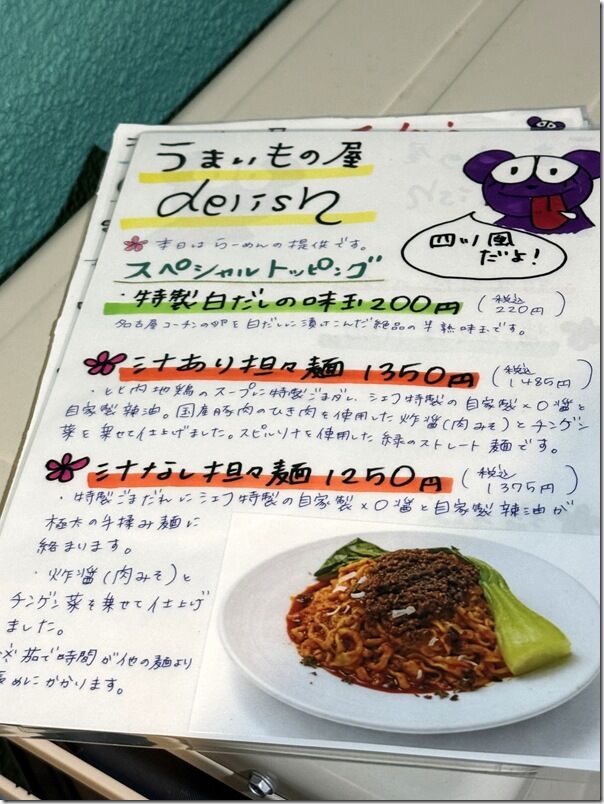 うまいもの屋
delish
本日はらーめんの提供です。
四川風
だよ!
スペシャルトッピング
・特製白だしの味玉200円(税込220円)
名古屋コーチンの卵を白だしに漬けこんだ絶品の半熟味玉です。
汁あり担々麺 1350円(税込1485円)
・とと肉地鶏のスープに特製ごまだれ、シェフ特製の自家製XO醤と
自家製辣油。国産豚肉のひき肉を使用した炸醤(肉みそ)とチンゲン
菜を乗せて仕上げました。スピルリナを使用した緑のストレート麺です。
汁なし担々麺 1250円(税込1375円)
・特製ごまだれにシェフ特製の自家製XO醤と自家製辣油が
極太の手揉み麺に
絡まります。
・炸醤(肉みそ)と
チンゲン菜を乗せて仕上げ
ました。
※茹で時間が他の麺より
長めにかかります。